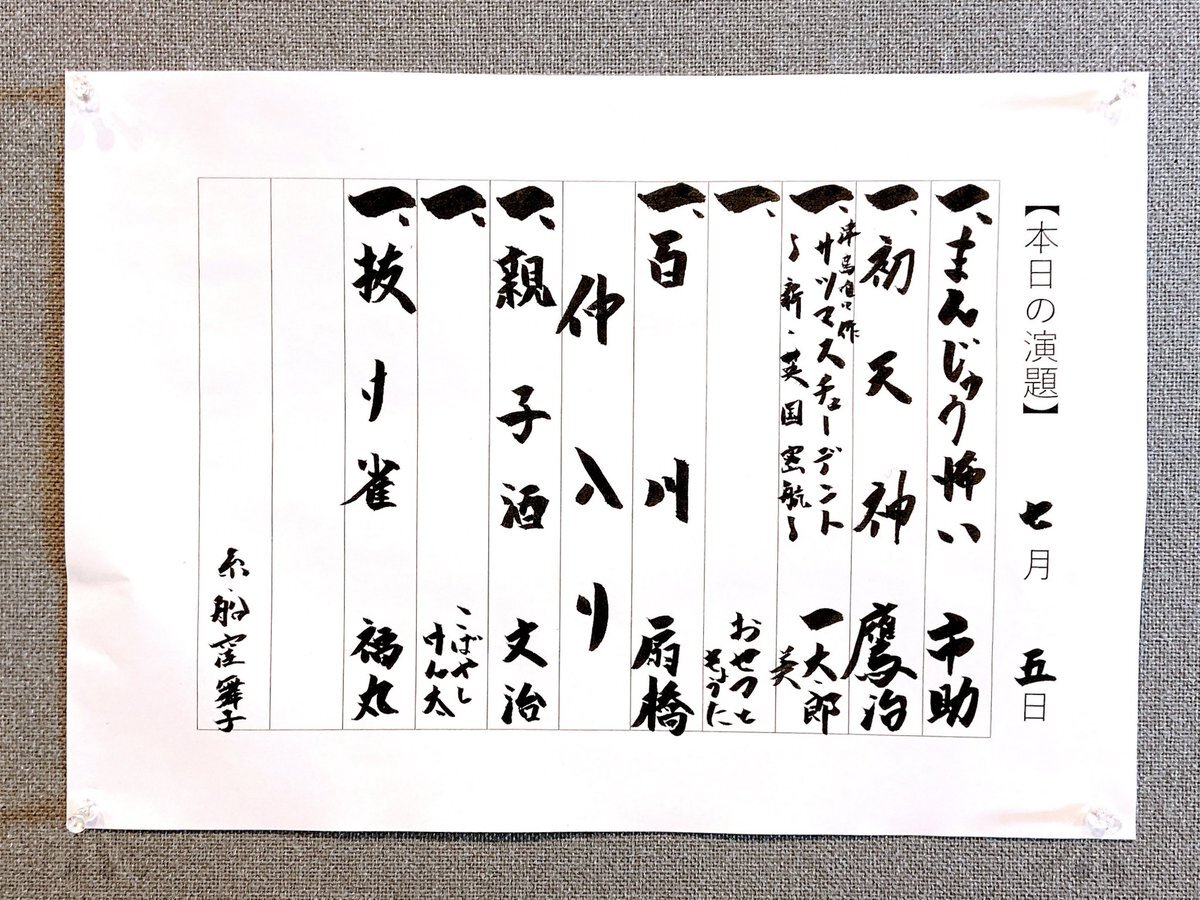 【本日の演題】 七月 五日
一、まんじゅう怖い 市助
一、初天神 鷹治
一、サツマスチューデント
〜新・英国密航〜
一太郎
英
一、
おせつと
きょうた
一、百川 扇橋
仲入り
一、親子酒 文治
一、
こばやし
けん太
一、抜け雀 福丸
糸・船窪舞子